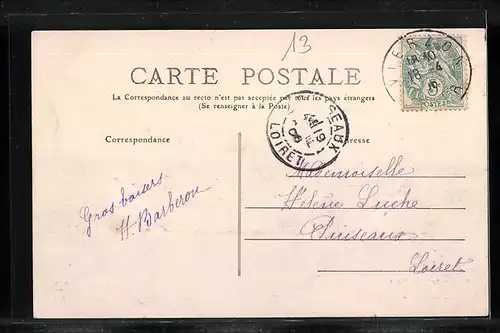 13
CARTE POSTALE
La Correspondance au recto n'est pas acceptée par tous les pays étrangers
(Se renseigner à la Poste)
Correspondance
Adresse
VIERZON
POSTES
PUISEAUX
LOIRET
Gros baisers
H. Barberon
Mademoiselle
Hélène Luche
Puiseaux
Loiret